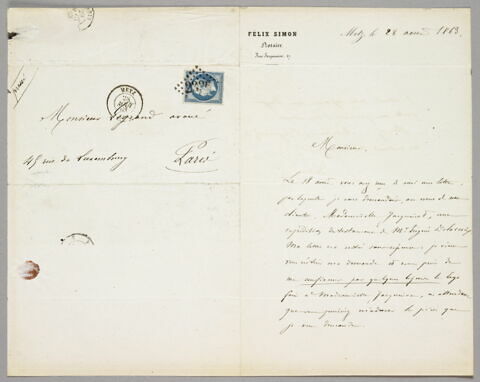 METZ
Monsieur Legrand avoué
45 rue de Luxembourg
Paris
FELIX SIMON
Notaire
Metz le 28 août 1863.
Monsieur,
Le 18 août, vous avez reçu de moi une lettre,
par laquelle je vous demandais, au nom de ma
cliente, Mademoiselle Jacquinot, une
expédition du testament de Mr
Ma lettre est restée sans réponse, je viens
vous réitérer ma demande et vous prier de
me confirmer par quelques lignes le legs
fait à Mademoiselle Jacquinot, en attendant
que vous puissiez m'adresser la pièce que
je vous demande.